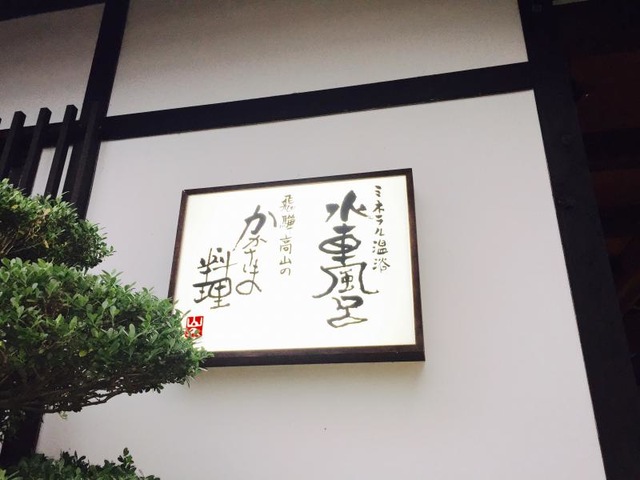 ミネラル温浴
水車風呂
飛騨高山の
かかさまの
料理